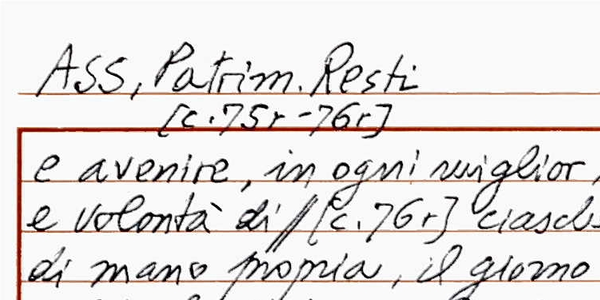 Ass, Patrim. Resti
[c.75r-76r]
e avenire, in ogni miglior
e volontà di //[c.76r]
di mano propria, il giorno